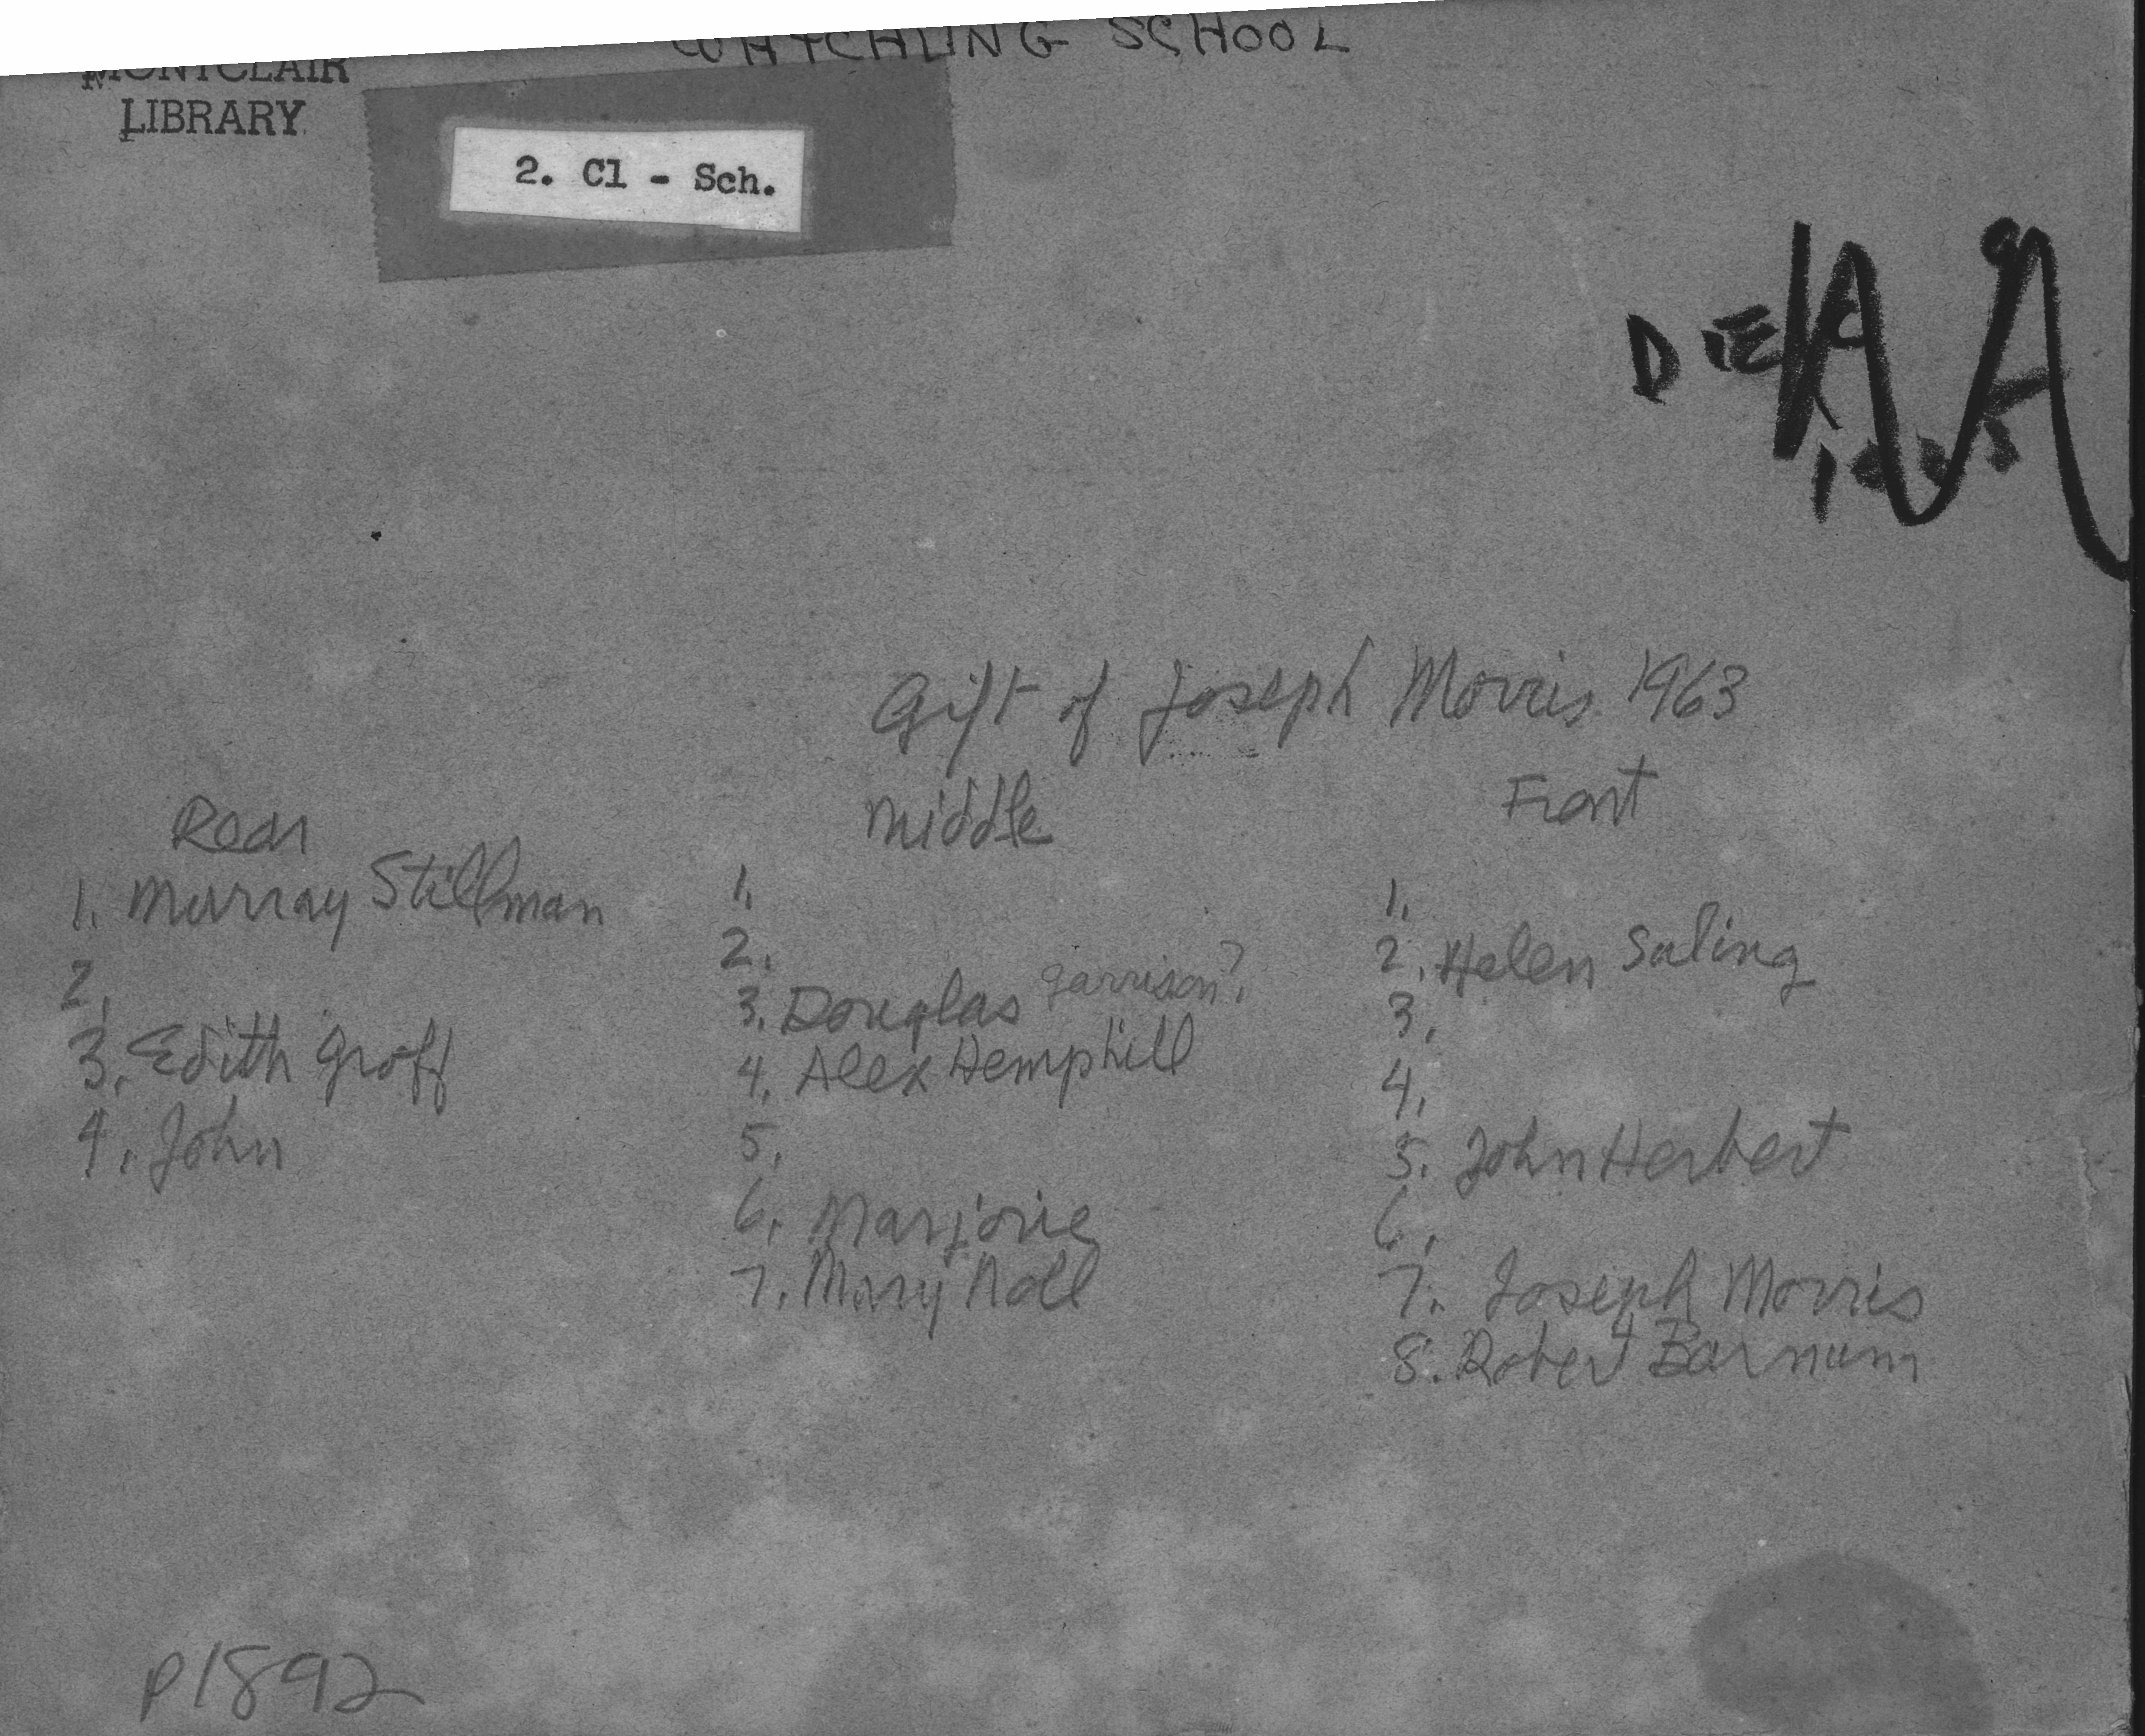 WATCHUNG SCHOOL
MONTCLAIR
LIBRARY
2. Cl - Sch.
Gift of Joseph Morris 1963
Rear
1. Murray Stillman
2.
3. Edith Groff
4. John
Middle
1.
2.
3. Douglas Garrison?
4. Alex Hemphill
5.
6. Marjorie
7. Mary Noll
Front
1.
2. Helen Saling
3.
4.
5. John Herbert
6.
7. Joseph Morris
8. Robert Barnum
P1892